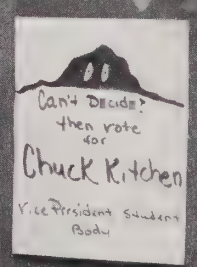 Can't Decide?
then vote
for
Chuck Kitchen
Vice President Student
Body